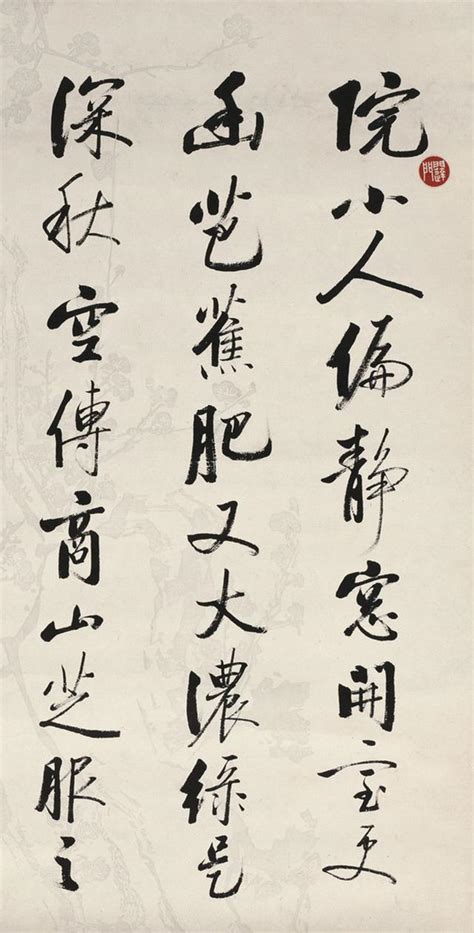 院小人偏静窓開室更
幽芭蕉肥又大濃緑是
深秋空傳商山芝服之